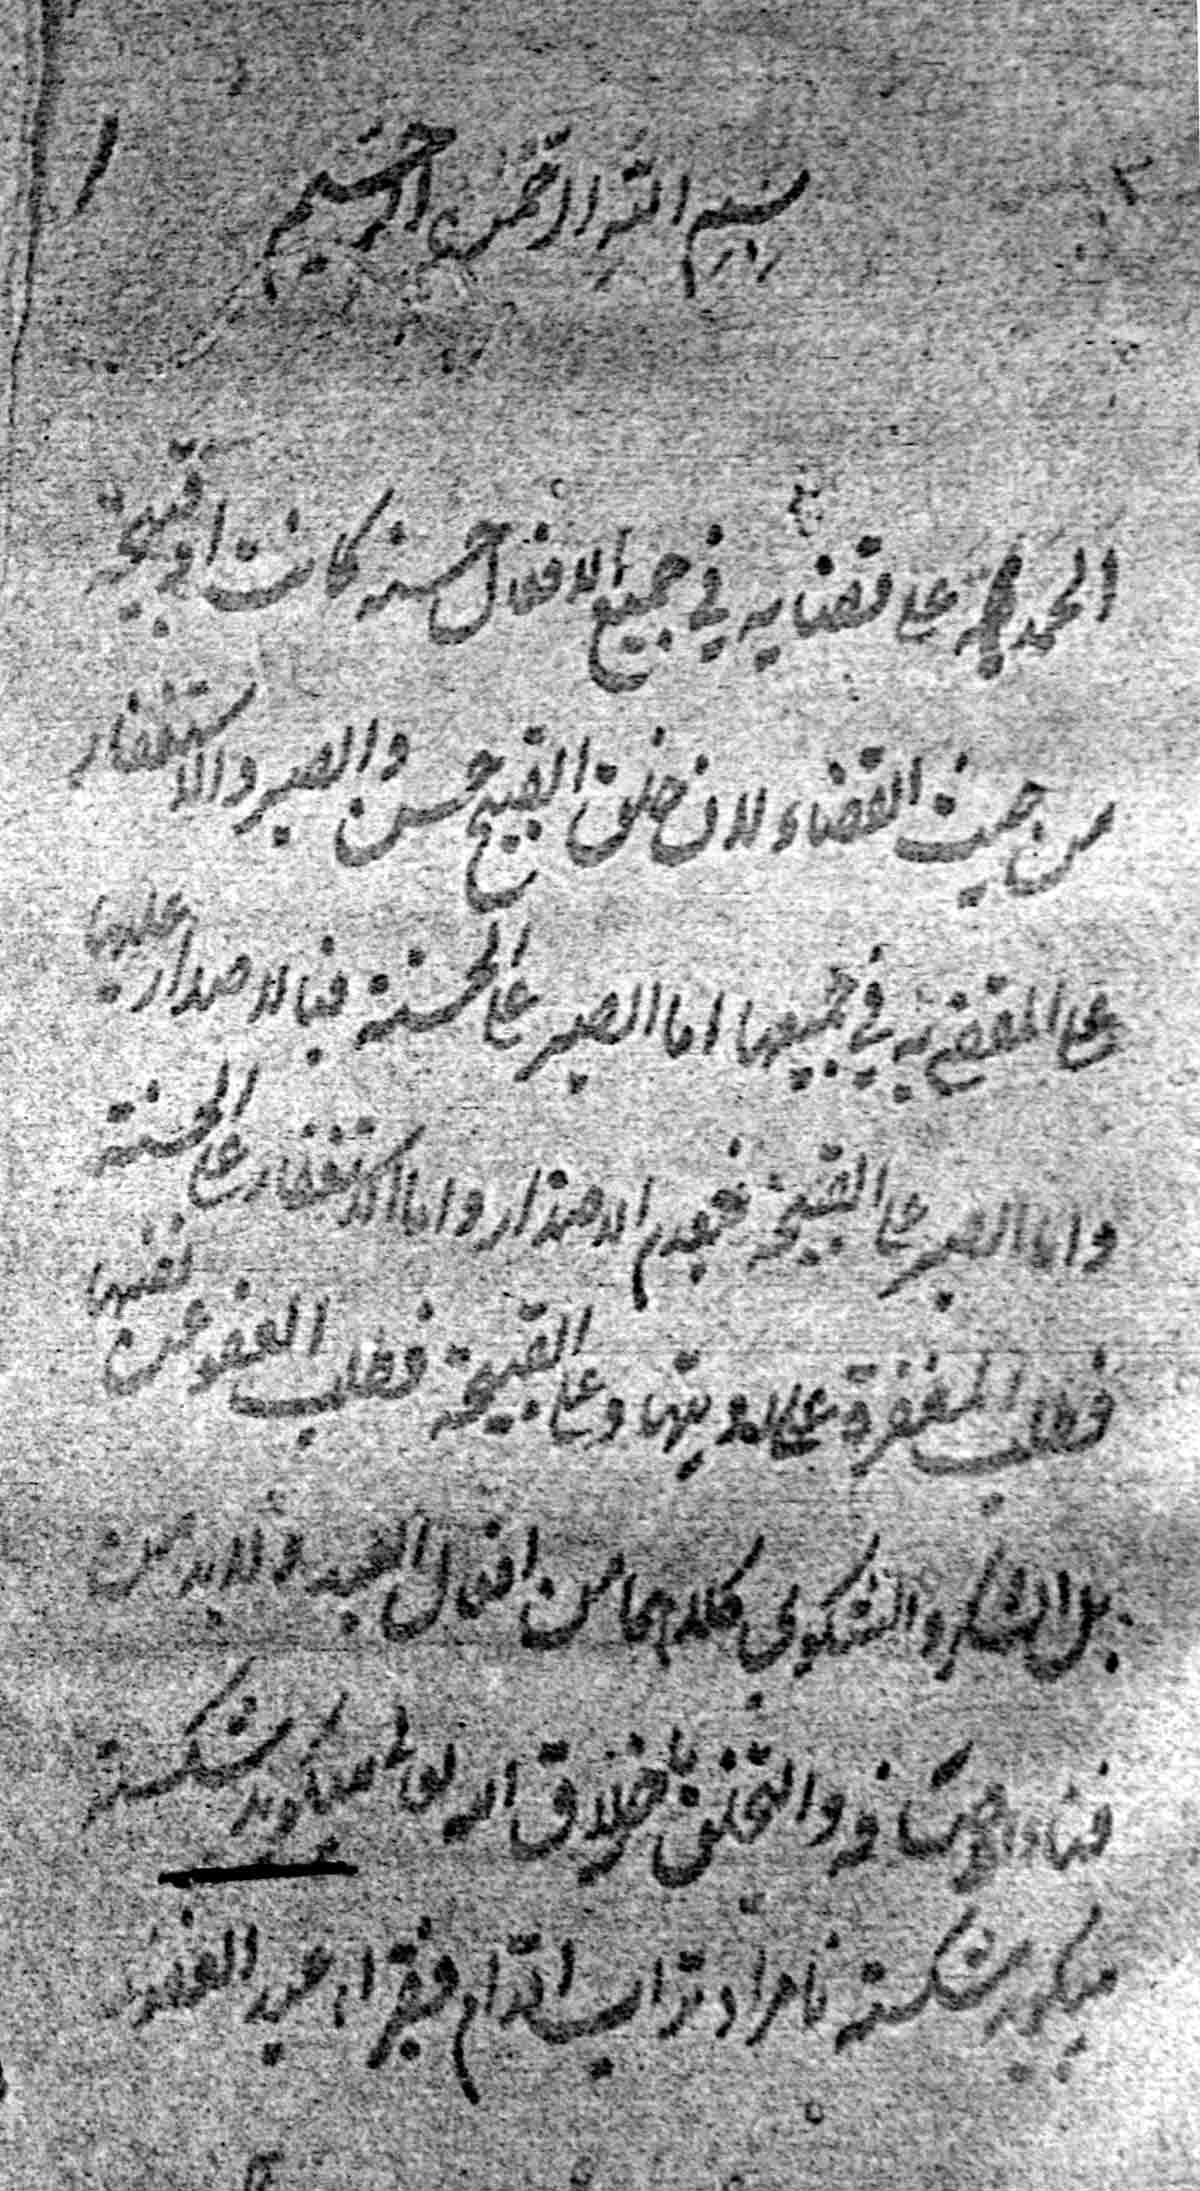 بسم الله الرحمن الرحيم
الحمد لله على قضايه في جميع الافعال حسنه كانت او قبيحة
من حيث القضاء لان خلق القبيح حسن والصبر والاستغفار
على المقضي به في جميعها اما الصبر على الحسنة فبالاصدار عليها
واما الصبر على القبيحة فبعدم الاصدار واما الاستغفار على الحسنة
فطلب المغفرة على رويتها وعلى القبيحة فطلب العفو عن نفسها
بل الشكر والشكوى كلاهما من افعال العبد فلابد من
والتخلق باخلاق الله شكسته
ميكويد شكسته نامراد تراب اقدام فقرا عبد الغفور